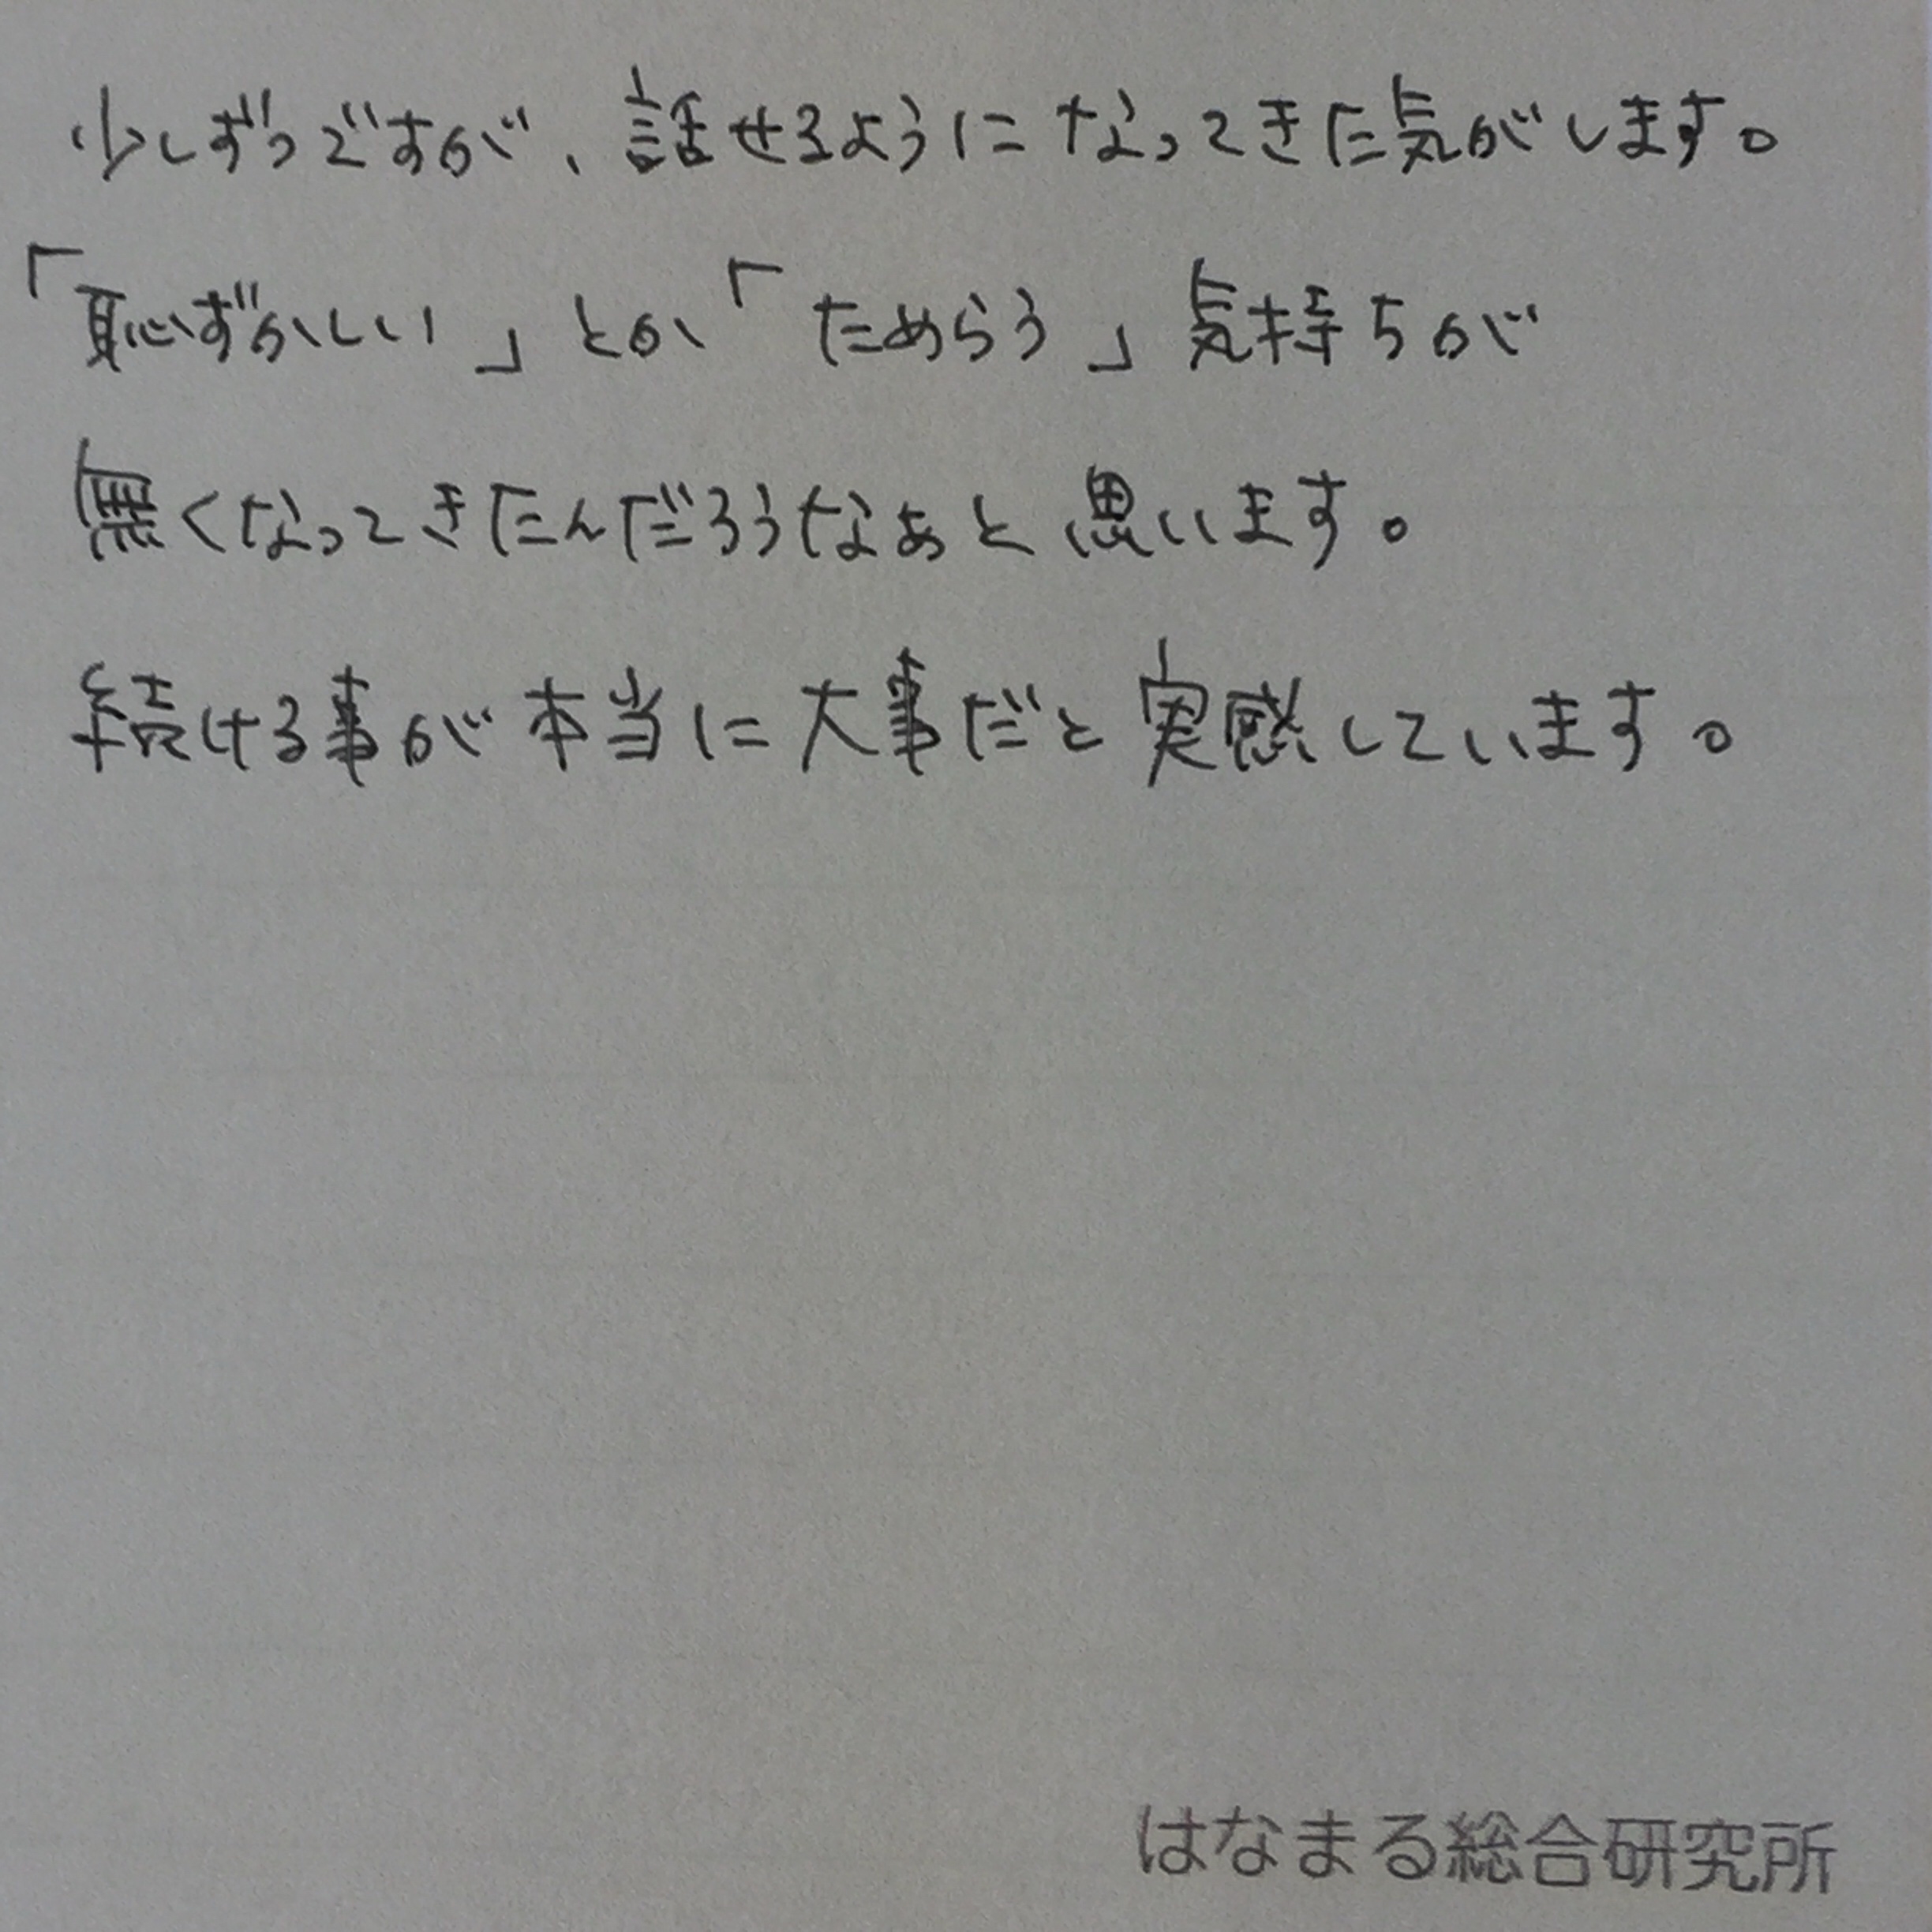 少しずつですが、話せるようになってきた気がします。
「恥ずかしい」とか「ためらう」気持ちが
無くなってきたんだろうなぁと思います。
続ける事が本当に大事だと実感しています。
はなまる総合研究所